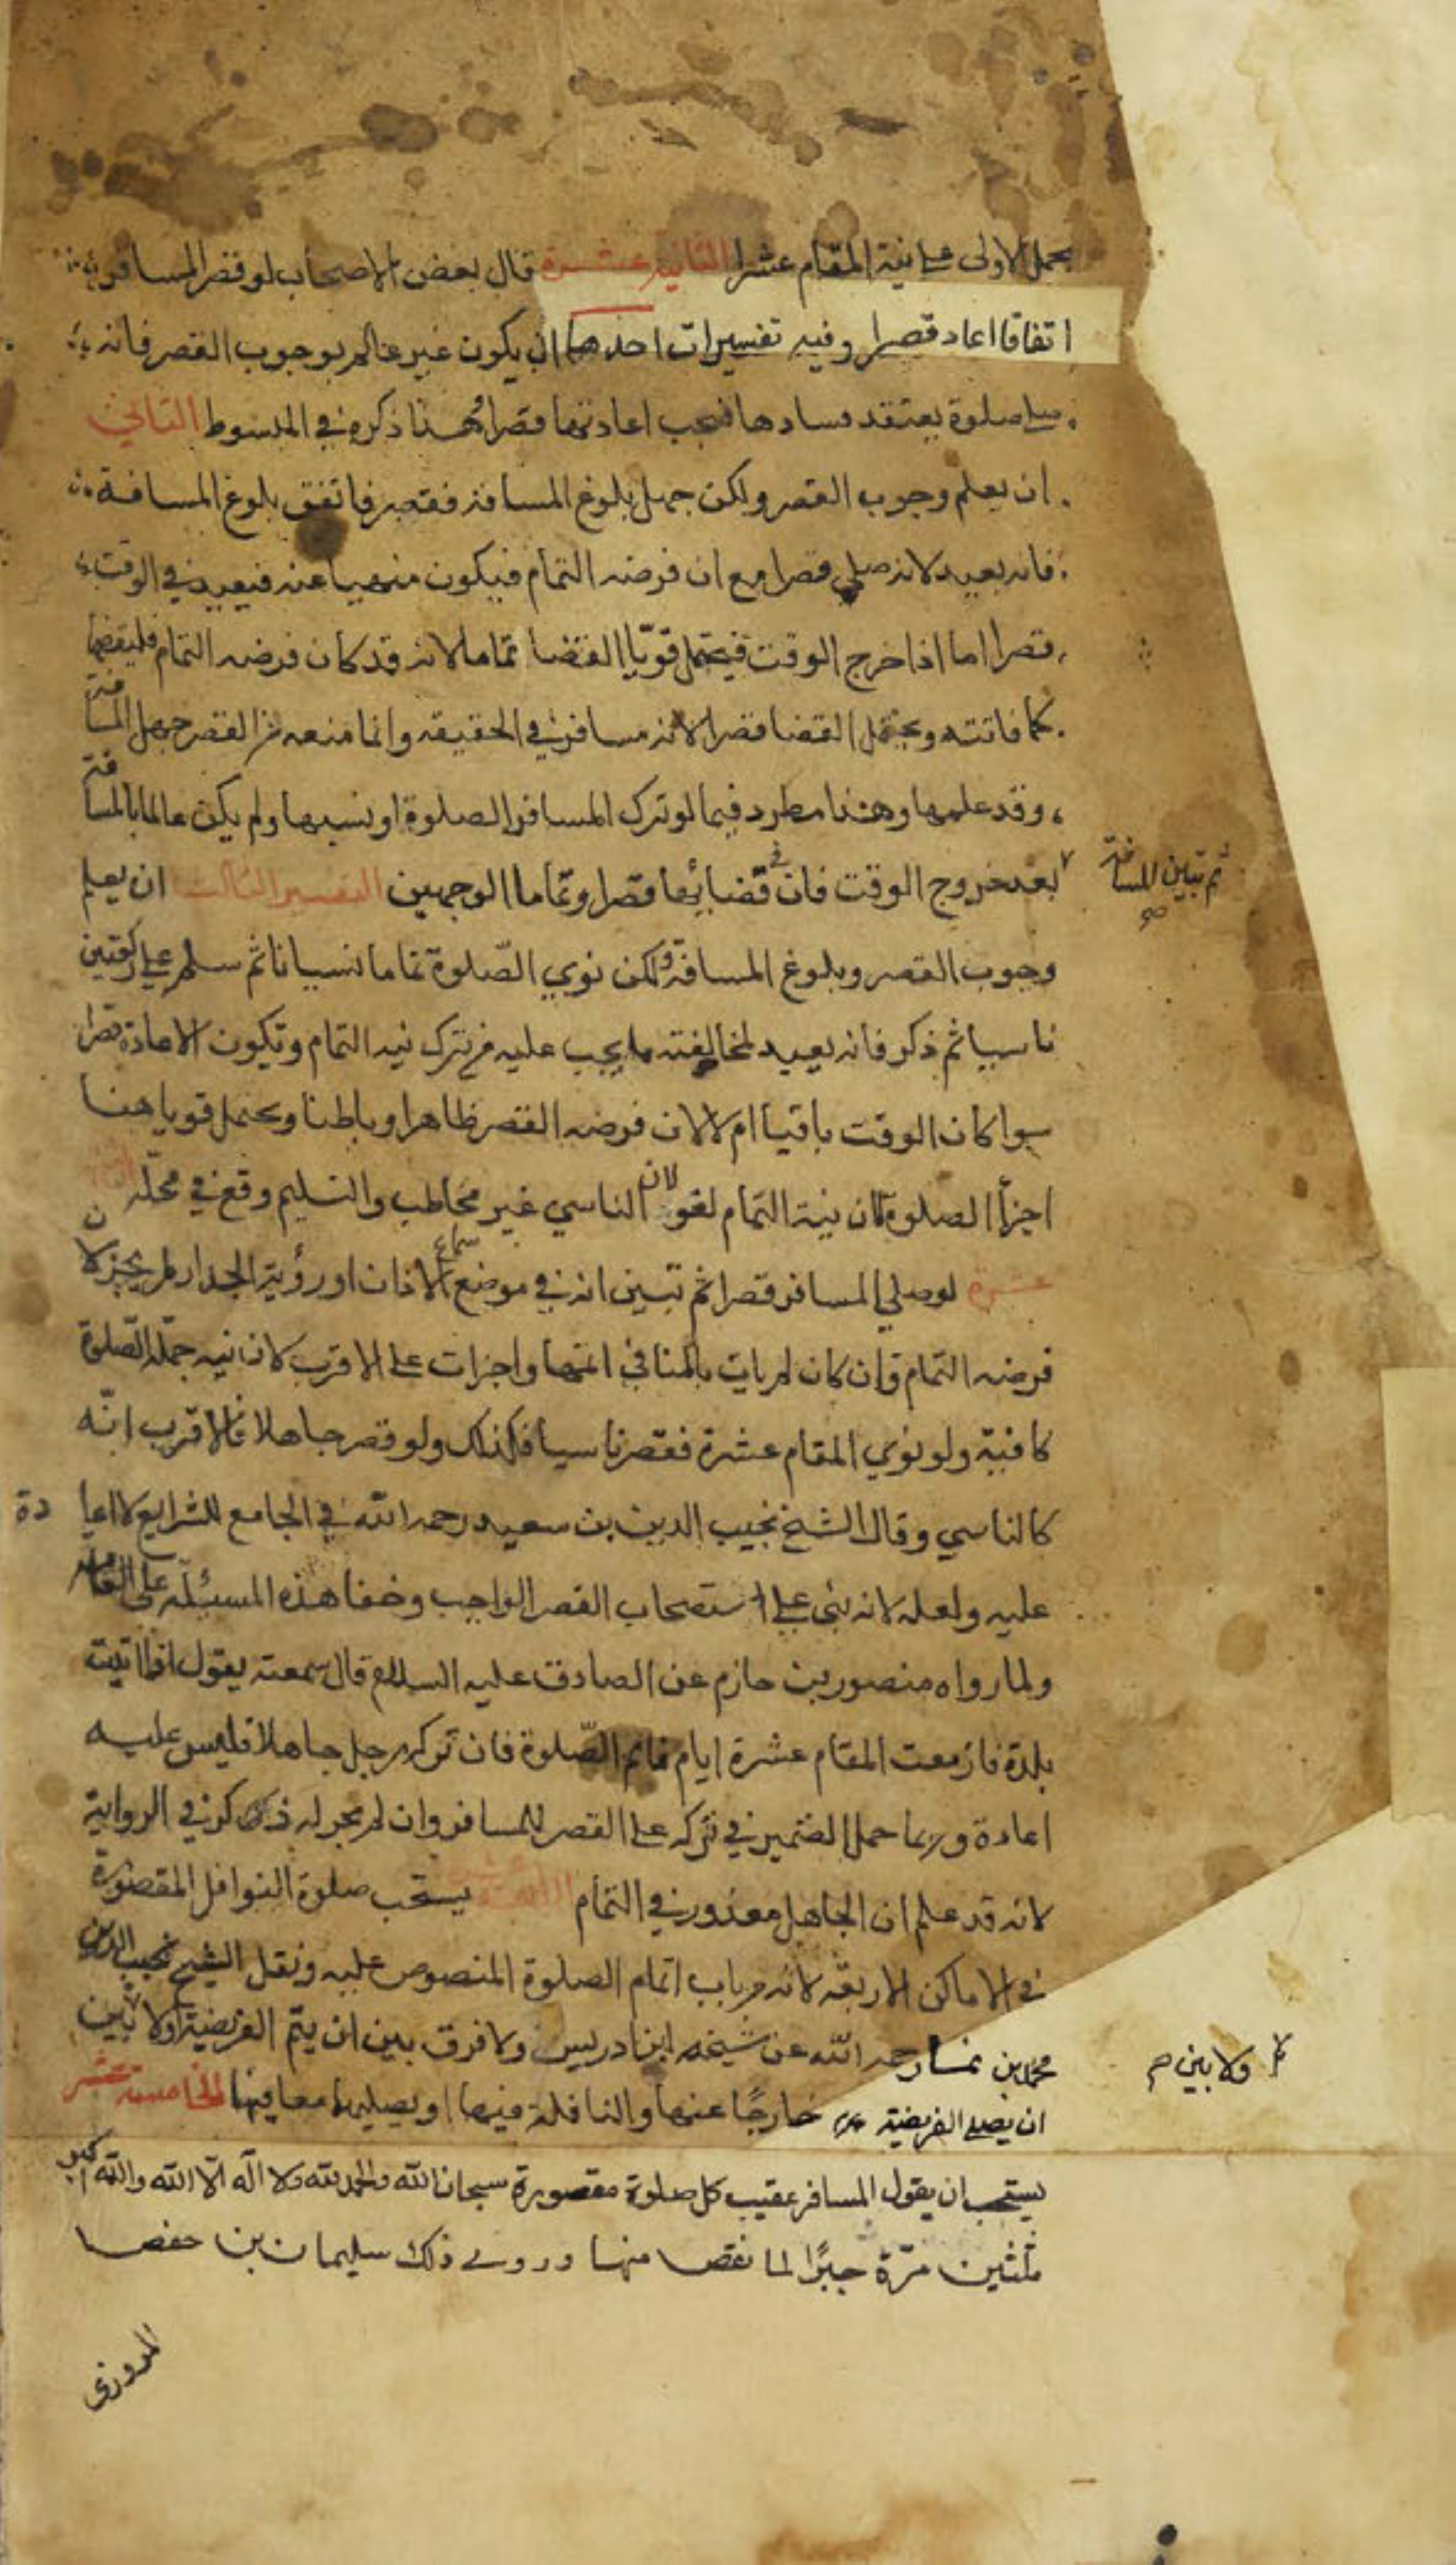 يحمل الاولى على نية المقام عشرا الثانية عشرة قال بعض الاصحاب لو قصر المسافر
اتفاقا اعاد قصرا وفيه تفسيرات احدها ان يكون غير عالم بوجوب القصر فانه
صلى صلوة يعتقد فسادها فيجب اعادتها قصرا هذا ذكره في المبسوط الثاني
ان يعلم وجوب القصر ولكن جهل بلوغ المسافة فقصر فاتفق بلوغ المسافة
فانه يعيد لانه صلى قصرا مع ان فرضه التمام فيكون منهيا عنه فيعيد في الوقت
قصرا اما اذا خرج الوقت فيحتمل قويّا القضا تماما لانه قد كان فرضه التمام فليقضها
كما فاتته ويحتمل القضا قصرا لانه مسافر في الحقيقه وانما منعه من القصر جهل المسافة
وقد علمها وهذا مطرد فيما لو ترك المسافر الصلوة او نسيها ولم يكن عالما بالمسافة
ثم تبين المسافة صح
بعد خروج الوقت فان في قضائها قصرا وتماما الوجهين التفسير الثالث ان يعلم
وجوب القصر وبلوغ المسافة ولكن نوى الصّلوة تماما نسيانا ثم سلم على ركعتين
ناسيا ثم ذكر فانه يعيد لمخالفته ما يجب عليه من ترك نيه التمام وتكون الاعادة قصرا
سوا كان الوقت باقيا ام لا لان فرضه القصر ظاهرا وباطنا ويحتمل قويا هنا
اجزأ الصلوة لان نية التمام لغو لان الناسي غير مخاطب والتسليم وقع في محلّه
عشرة لو صلى المسافر قصرا ثم تبين انه في موضع سماع الاذان او رؤية الجدار لم يجز لان
فرضه التمام وان كان لم يات بالمنافي اتمها واجزات على الاقرب لان نيه جملة الصّلوة
كافية ولو نوى المقام عشرة فقصر ناسيا فكذلك ولو قصر جاهلا فالاقرب انّه
كالناسي وقال الشيخ نجيب الدين بن سعيد رحمه الله في الجامع للشرايع لا اعادة
عليه ولعله لانه بنى على استصحاب القصر الواجب وخفا هذه المسئلة على العامة
ولما رواه منصور بن حازم عن الصادق عليه السلام قال سمعته يقول اذا اتيت
بلدة فازمعت المقام عشرة ايام فاتم الصّلوة فان تركه رجل جاهلا فليس عليه
اعادة وربما حمل الضمير في تركه على القصر للمسافر وان لم يجر له ذكر في الرواية
لانه قد علم ان الجاهل معذور في التمام الرابعة عشرة يستحب صلوة النوافل المقصورة
في الاماكن الاربعة لانه من باب اتمام الصلوة المنصوص عليه ونقل الشيخ نجيب الدين
محمد بن نما رحمه الله عن شيخه ابن ادريس ولا فرق بين ان يتم الفريضة او لا بين
ولا بين صح
ان يصلى الفريضة خارجًا عنها والنافلة فيها او يصليهما معا فيها الخامسة عشر
يستحب ان يقول المسافر عقيب كل صلوة مقصورة سبحان الله والحمد لله ولا اله الّا الله والله اكبر
ثلثين مرّة جبرًا لما نقص منها وروى ذلك سليمان بن حفص
المروزى